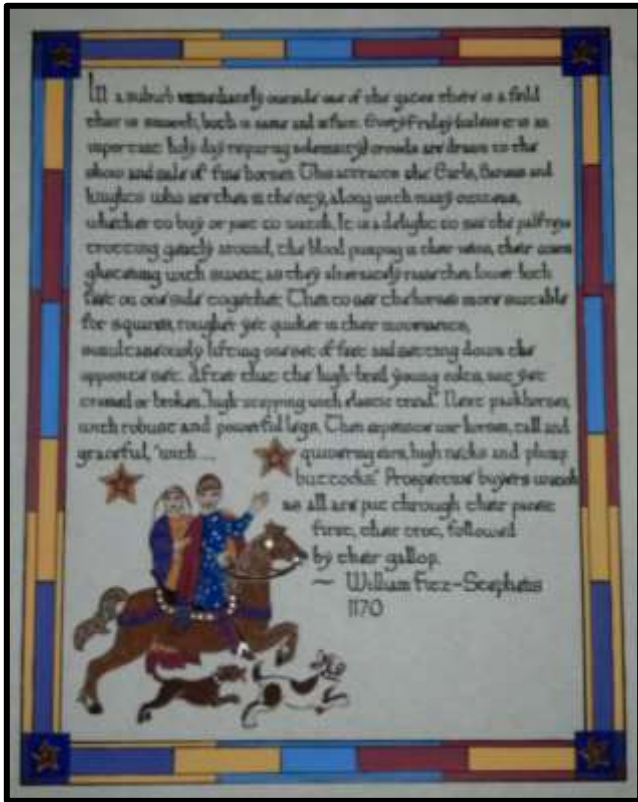 In a suburb immediately outside one of the gates there is a field
that is smooth, both in name and in fact. Every Friday (unless it is an
important holy day requiring solemnity) crowds are drawn to the
show and sale of fine horses. This attracts the Earls, Barons and
knights who are then in the city, along with many citizens,
whether to buy or just to watch. It is a delight to see the palfreys
trotting gently around, the blood pumping in their veins, their coats
glistening with sweat, as they alternately raise then lower both
feet on one side together. Then to see the horses more suitable
for squires, rougher yet quicker in their movements,
simultaneously lifting one set of feet and setting down the
opposite set. After that the high-bred young colts, not yet
trained or broken, "high-stepping with elastic tread." Next packhorses,
with robust and powerful legs. Then expensive war horses, tall and
graceful, "with ... quivering ears, high necks and plump
buttocks." Prospective buyers watch
as all are put through their paces:
first, their trot, followed
by their gallop.
~ William Fitz-Stephens
1170